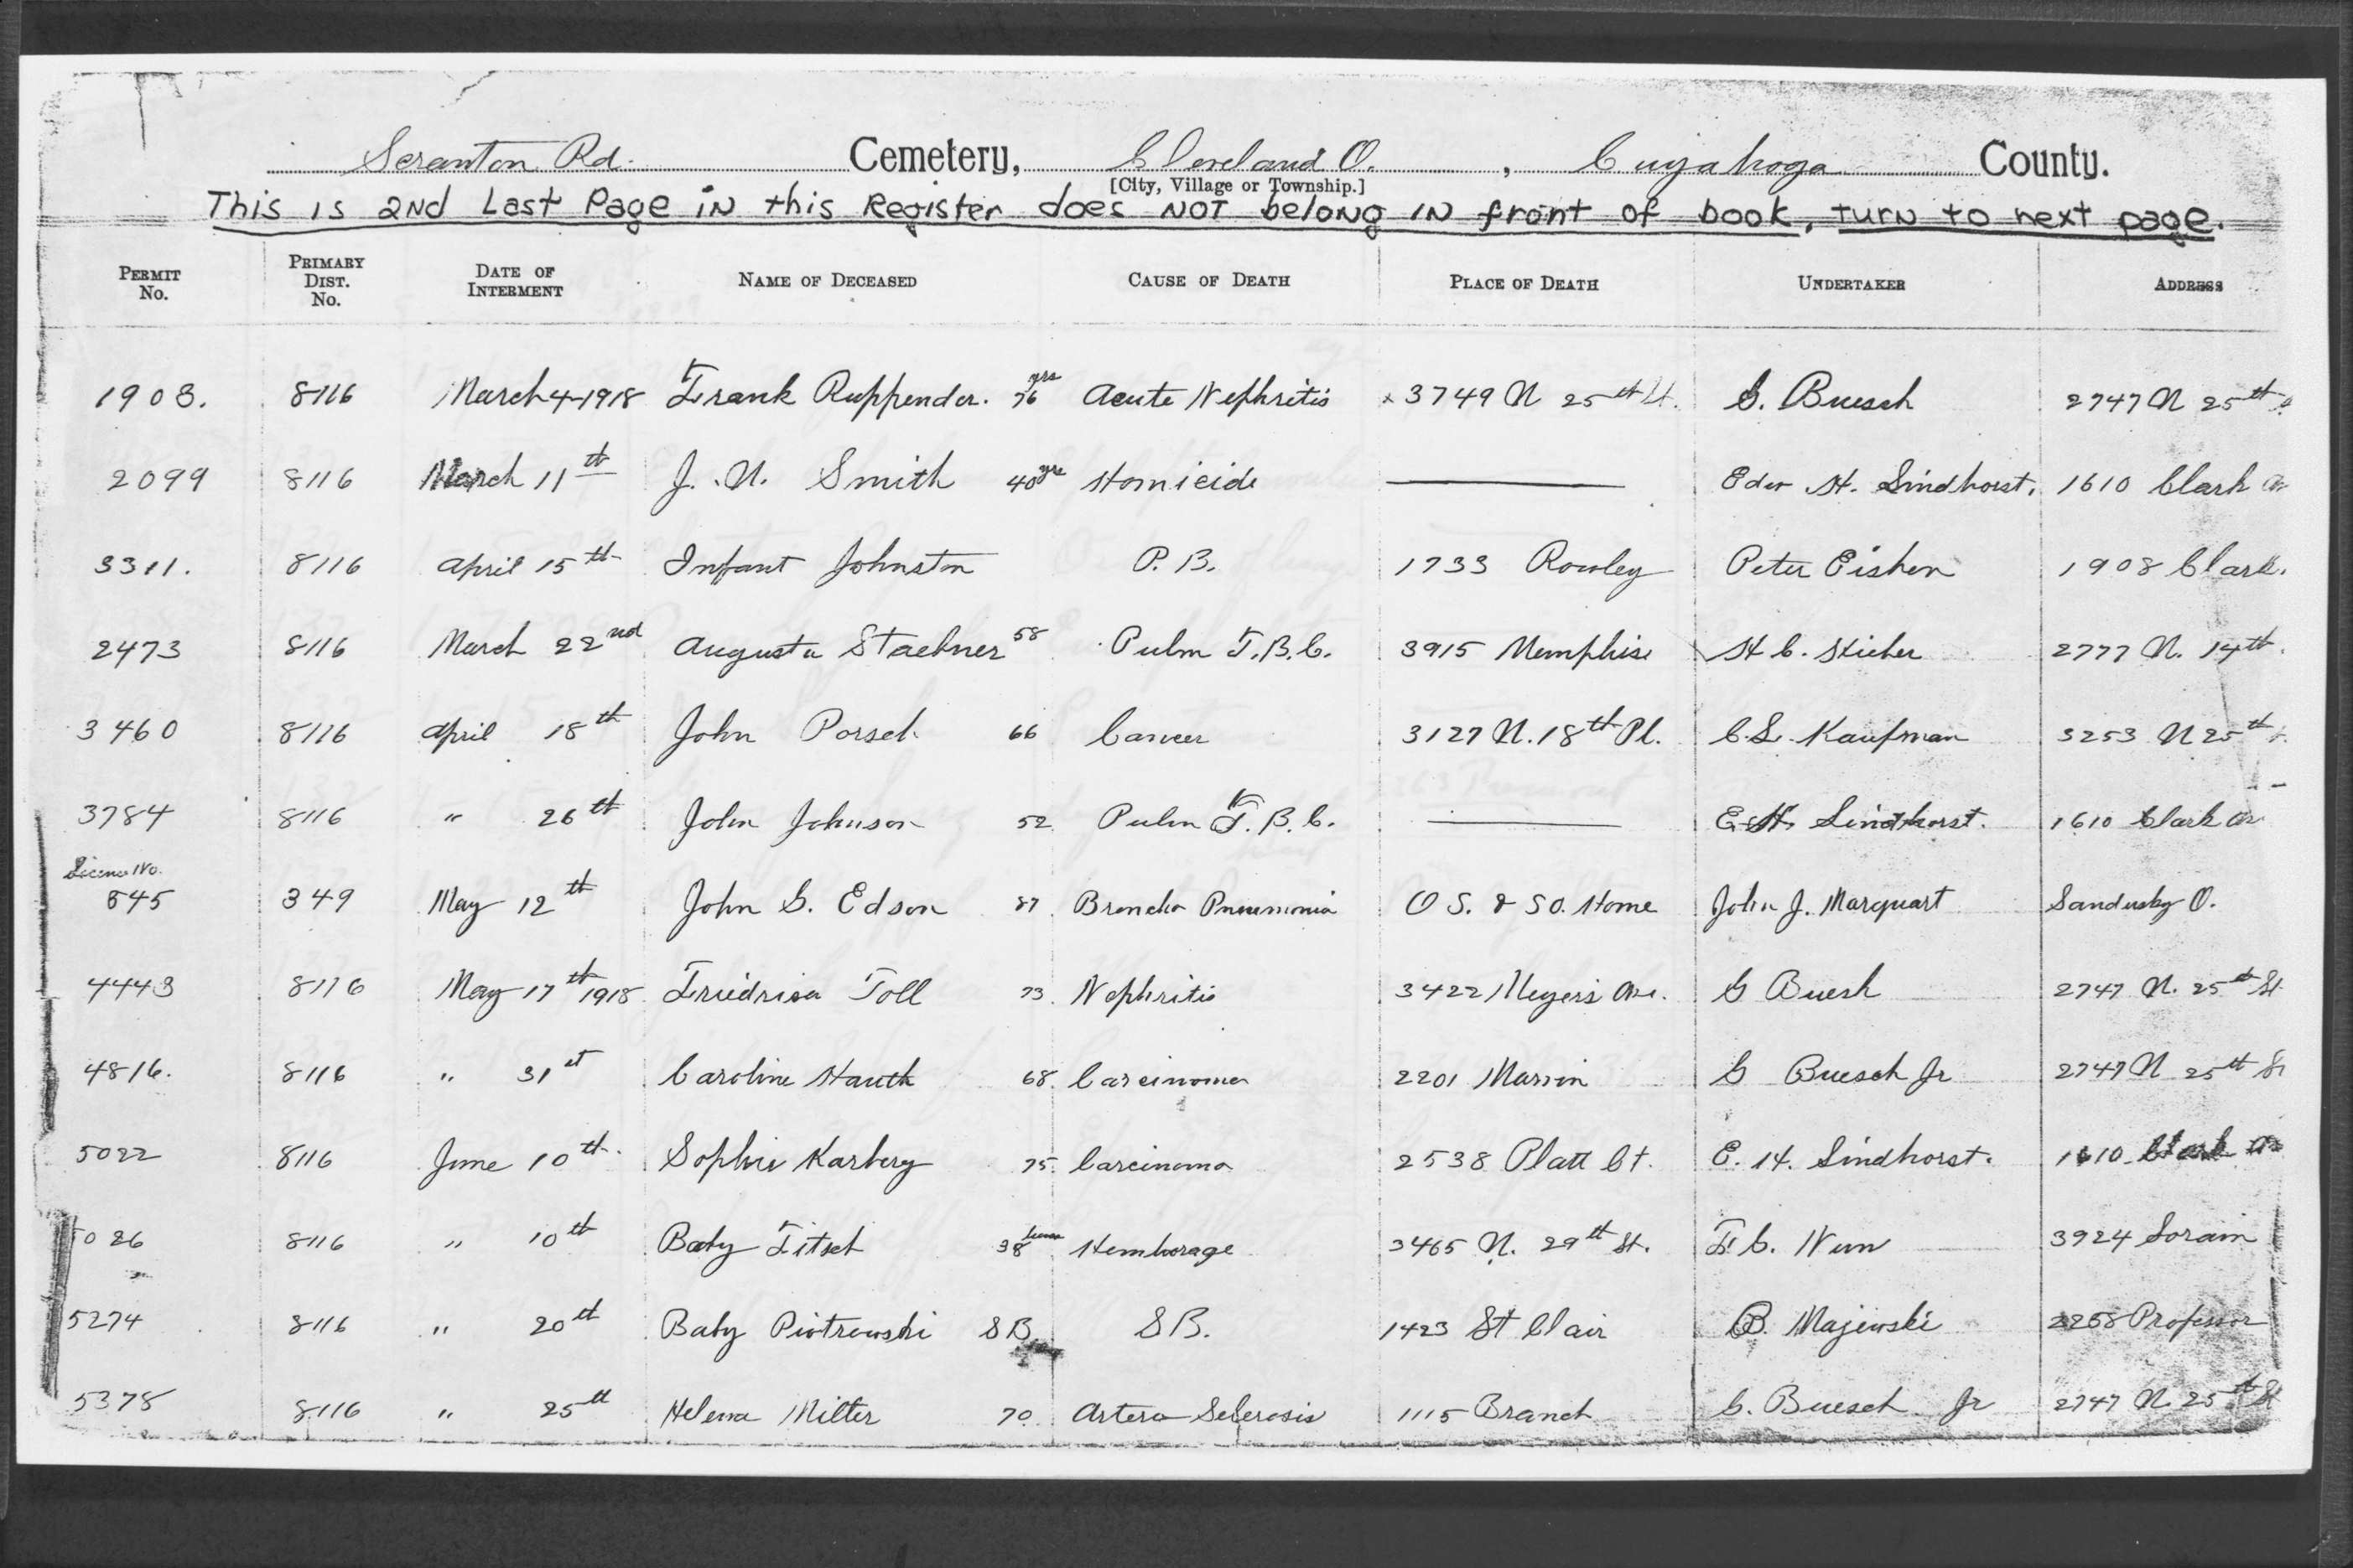 Scranton Rd. Cemetery, Cleveland O. , Cuyahoga County.
[City, Village or Township.]
This is 2nd Last Page in this Register does NOT belong in front of book, turn to next page.
PERMIT No. PRIMARY DIST. No. DATE OF INTERMENT NAME OF DECEASED CAUSE OF DEATH PLACE OF DEATH UNDERTAKER ADDRESS
1903. 8116 March 4-1918 Frank Ruppender. 76 yrs Acute Nephritis 3749 W 25th St. G. Buesch 2747 W 25th
2099 8116 March 11th J. W. Smith 40 yrs Homicide Edw H. Lindhorst. 1610 Clark Av
3311. 8116 April 15th Infant Johnston P. B. 1733 Rowley Peter 1908 Clark.
2473 8116 March 22nd Augusta Staehner 58 Pulm T.B.C. 3915 Memphis H C. 2777 W. 14th.
3460 8116 April 18th John Porsch 66 Cancer 3127 W. 18th Pl. C.L. Kaufman 3253 W 25th
3784 8116 " 26th John Johnson 52 Pulm T.B.C. E. H. Lindhorst. 1610 Clark Av
License No.
845 349 May 12th John G. Edson 87 Broncho Pneumonia O S. & SO. Home John J. Marquart Sandusky O.
4443 8116 May 17th 1918 Friedrisa Toll 73. Nephritis 3422 Meyers Ave. G Buesh 2747 W. 25th St
4816. 8116 " 31st Caroline Hauth 68. Carcinoma 2201 Marvin G Buesch Jr 2747 W 25th St
5022 8116 June 10th. Sophie Karberg 75. Carcinoma 2538 Platt Ct. E. H. Lindhorst. 1610 Clark Av
5026 8116 " 10th Baby Fitsch 38 Hemhorage 3465 W. 29th St. F. C. 3924 Lorain
5274 8116 " 20th Baby Piotrowski SB SB. 1423 St Clair B. Majewski 2258 Professor
5378 8116 " 25th Helena Milter 70 Artero Sclerosis 1115 Branch C. Buesch Jr 2747 W. 25th St